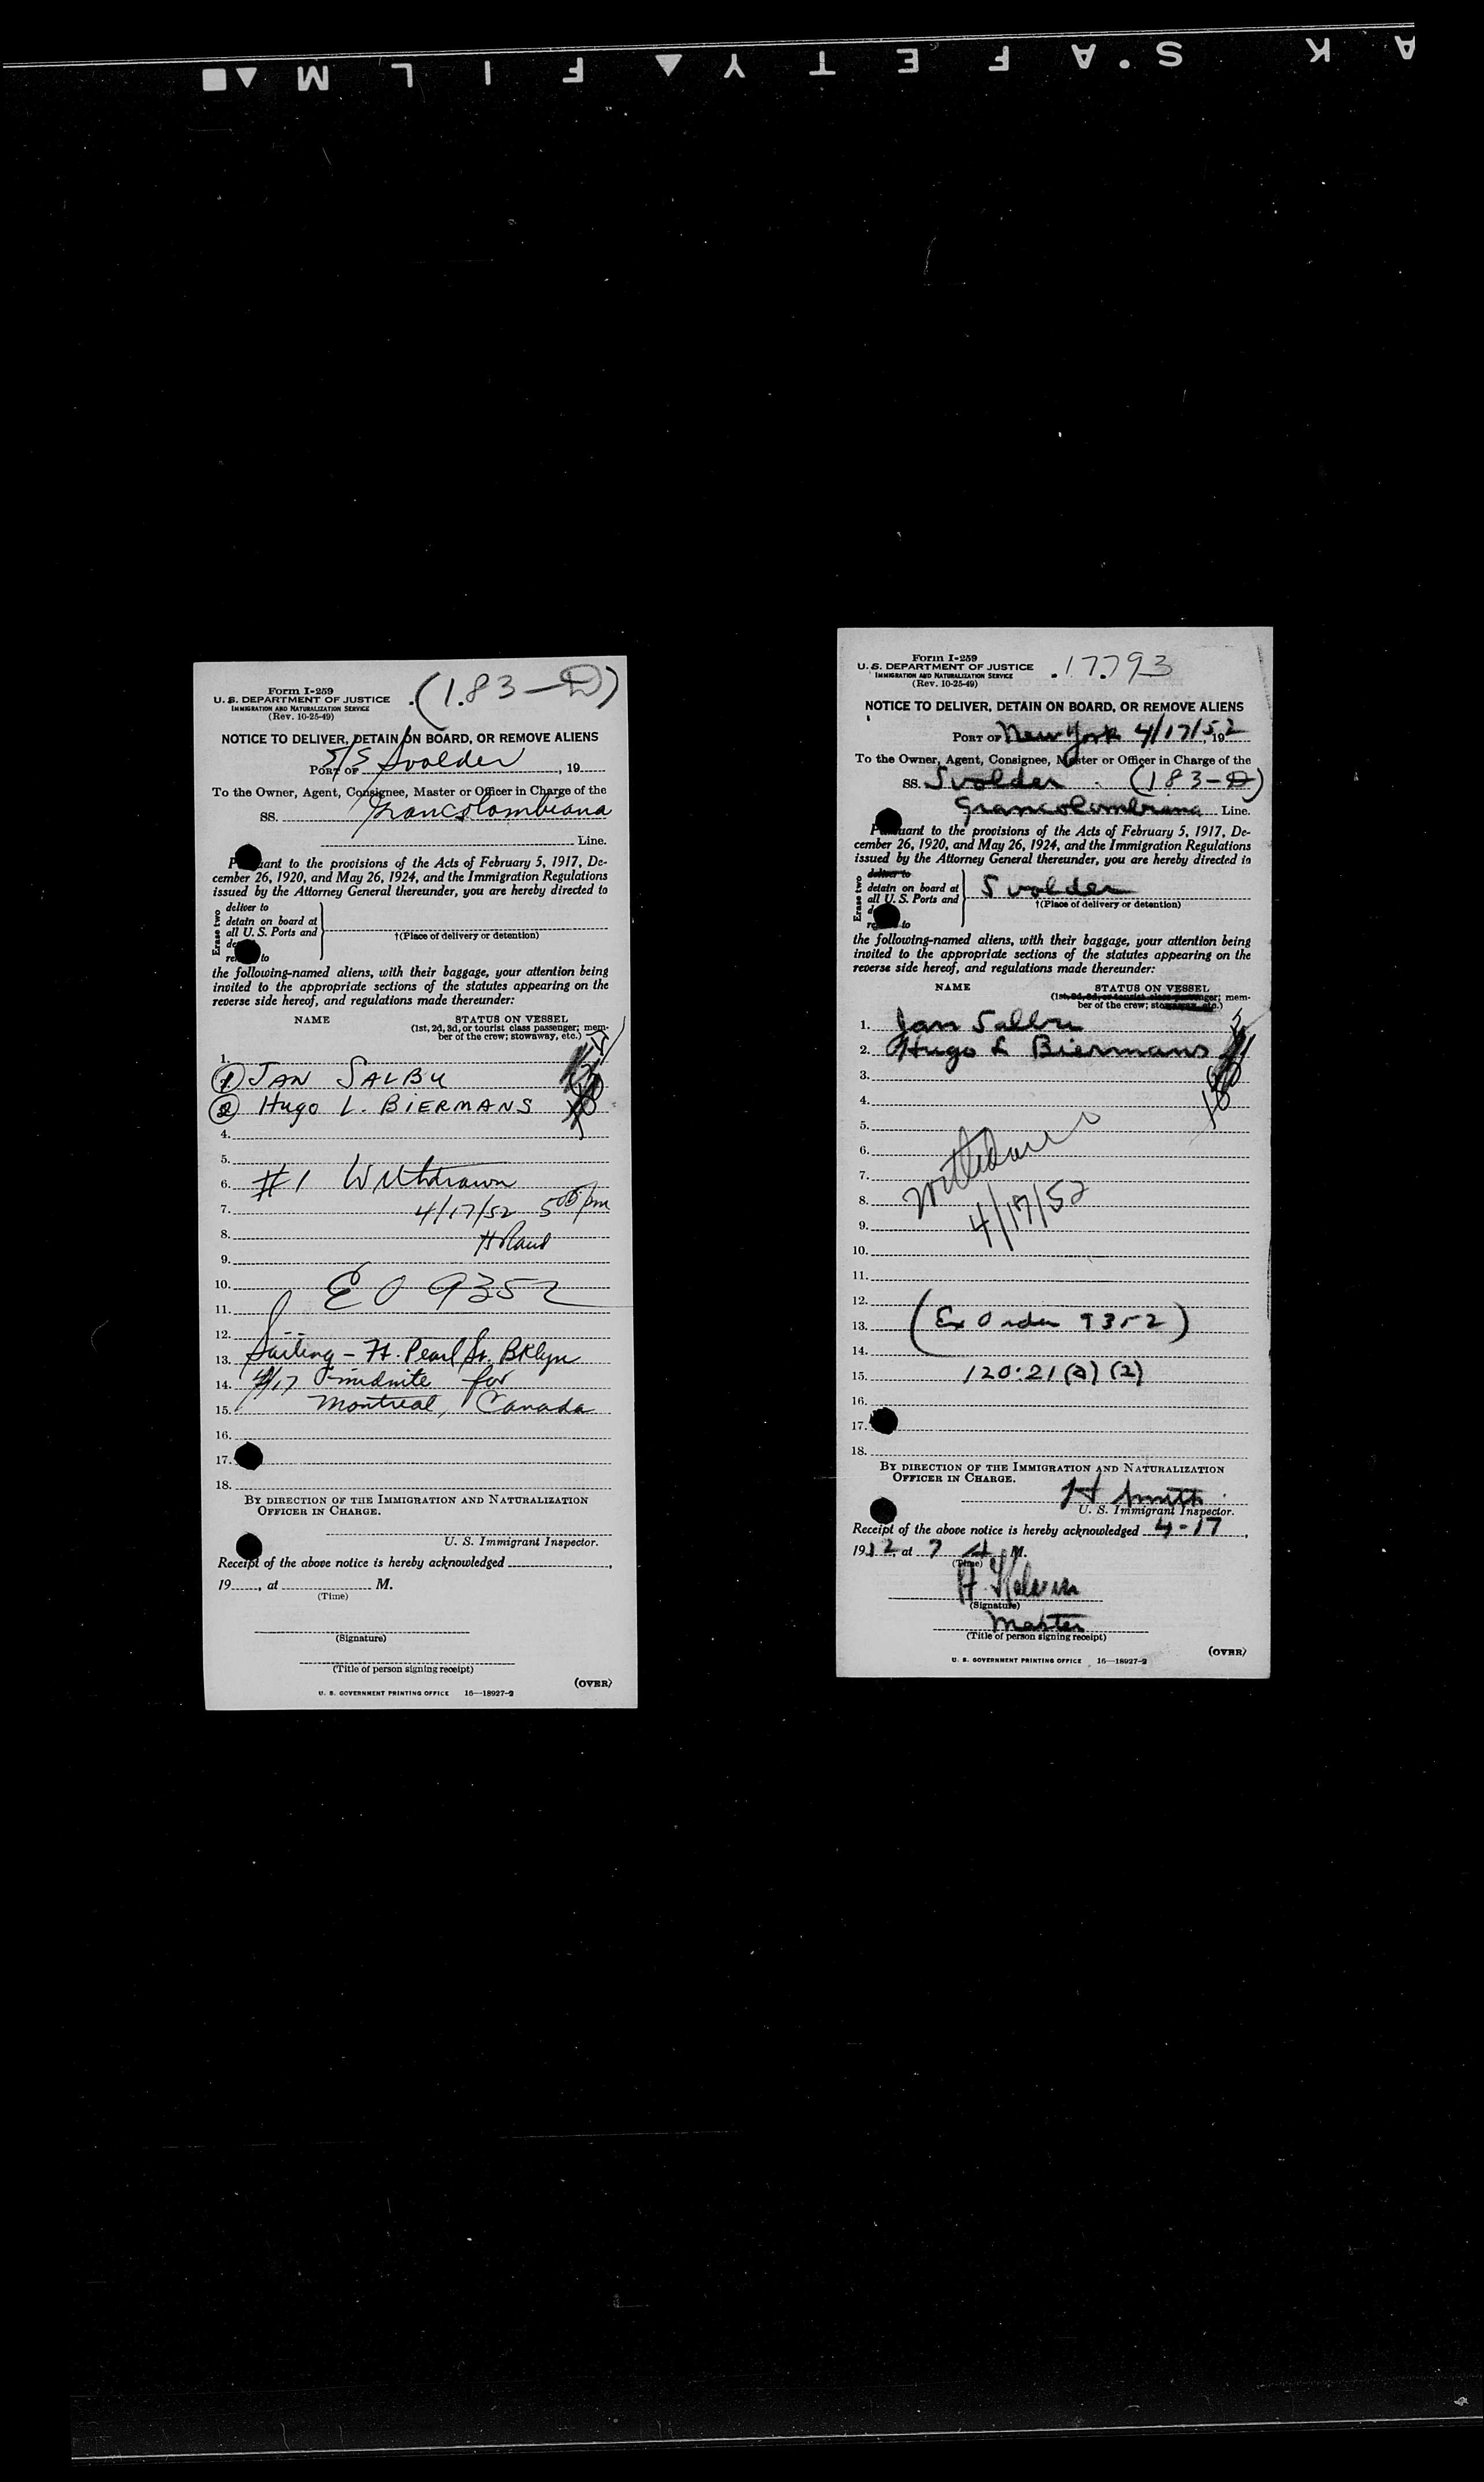 A K S'A F E T Y ▲ F I L M ■▲
Form I-259
U. S. DEPARTMENT OF JUSTICE
IMMIGRATION AND NATURALIZATION SERVICE
(Rev. 10-25-49)
(1.83-D)
NOTICE TO DELIVER, DETAIN ON BOARD, OR REMOVE ALIENS
PORT OF S/S Svolder, 19
To the Owner, Agent, Consignee, Master or Officer in Charge of the
SS. Grancolombiana
Line.
Pursuant to the provisions of the Acts of February 5, 1917, De-
cember 26, 1920, and May 26, 1924, and the Immigration Regulations
issued by the Attorney General thereunder, you are hereby directed to
Erase two
deliver to
detain on board at
all U. S. Ports and
†(Place of delivery or detention)
to
the following-named aliens, with their baggage, your attention being
invited to the appropriate sections of the statutes appearing on the
reverse side hereof, and regulations made thereunder:
NAME STATUS ON VESSEL
(1st, 2d, 3d, or tourist class passenger; mem-
ber of the crew; stowaway, etc.)
1.
① JAN SALBU
② Hugo L. BIERMANS
4.
5.
6. #1 Withdrawn
7. 4/17/52 5 00 pm
8.
9.
10. E O 9352
11.
12.
13. Sailing - Ft. Pearl St. Bklyn
14. 4/17 midnite for
15. Montreal, Canada
16.
17.
18.
BY DIRECTION OF THE IMMIGRATION AND NATURALIZATION
OFFICER IN CHARGE.
U. S. Immigrant Inspector.
Receipt of the above notice is hereby acknowledged ,
19 , at M.
(Time)
(Signature)
(Title of person signing receipt)
(OVER)
U. S. GOVERNMENT PRINTING OFFICE 16—18927-2
Form I-259
U. S. DEPARTMENT OF JUSTICE
IMMIGRATION AND NATURALIZATION SERVICE
(Rev. 10-25-49)
17793
NOTICE TO DELIVER, DETAIN ON BOARD, OR REMOVE ALIENS
PORT OF New York 4/17/52, 192
To the Owner, Agent, Consignee, Master or Officer in Charge of the
SS. Svolder (183-D)
Grancolombiana Line.
Pursuant to the provisions of the Acts of February 5, 1917, De-
cember 26, 1920, and May 26, 1924, and the Immigration Regulations
issued by the Attorney General thereunder, you are hereby directed to
Erase two
deliver to
detain on board at
all U. S. Ports and
Svolder
†(Place of delivery or detention)
to
the following-named aliens, with their baggage, your attention being
invited to the appropriate sections of the statutes appearing on the
reverse side hereof, and regulations made thereunder:
NAME STATUS ON VESSEL
(1st, 2d, 3d, or tourist class passenger; mem-
ber of the crew; stowaway, etc.)
1. Jan Salbu
2. Hugo L Biermans
3.
4.
5.
6.
7. Withdrawn
8. 4/17/52
9.
10.
11.
12.
13. (Ex Order 9352)
14.
15. 120.21(a)(2)
16.
17.
18.
BY DIRECTION OF THE IMMIGRATION AND NATURALIZATION
OFFICER IN CHARGE.
H Smith
U. S. Immigrant Inspector.
Receipt of the above notice is hereby acknowledged 4-17,
1952, at 7 A M.
(Time)
(Signature)
Master
(Title of person signing receipt)
(OVER)
U. S. GOVERNMENT PRINTING OFFICE 16—18927-2